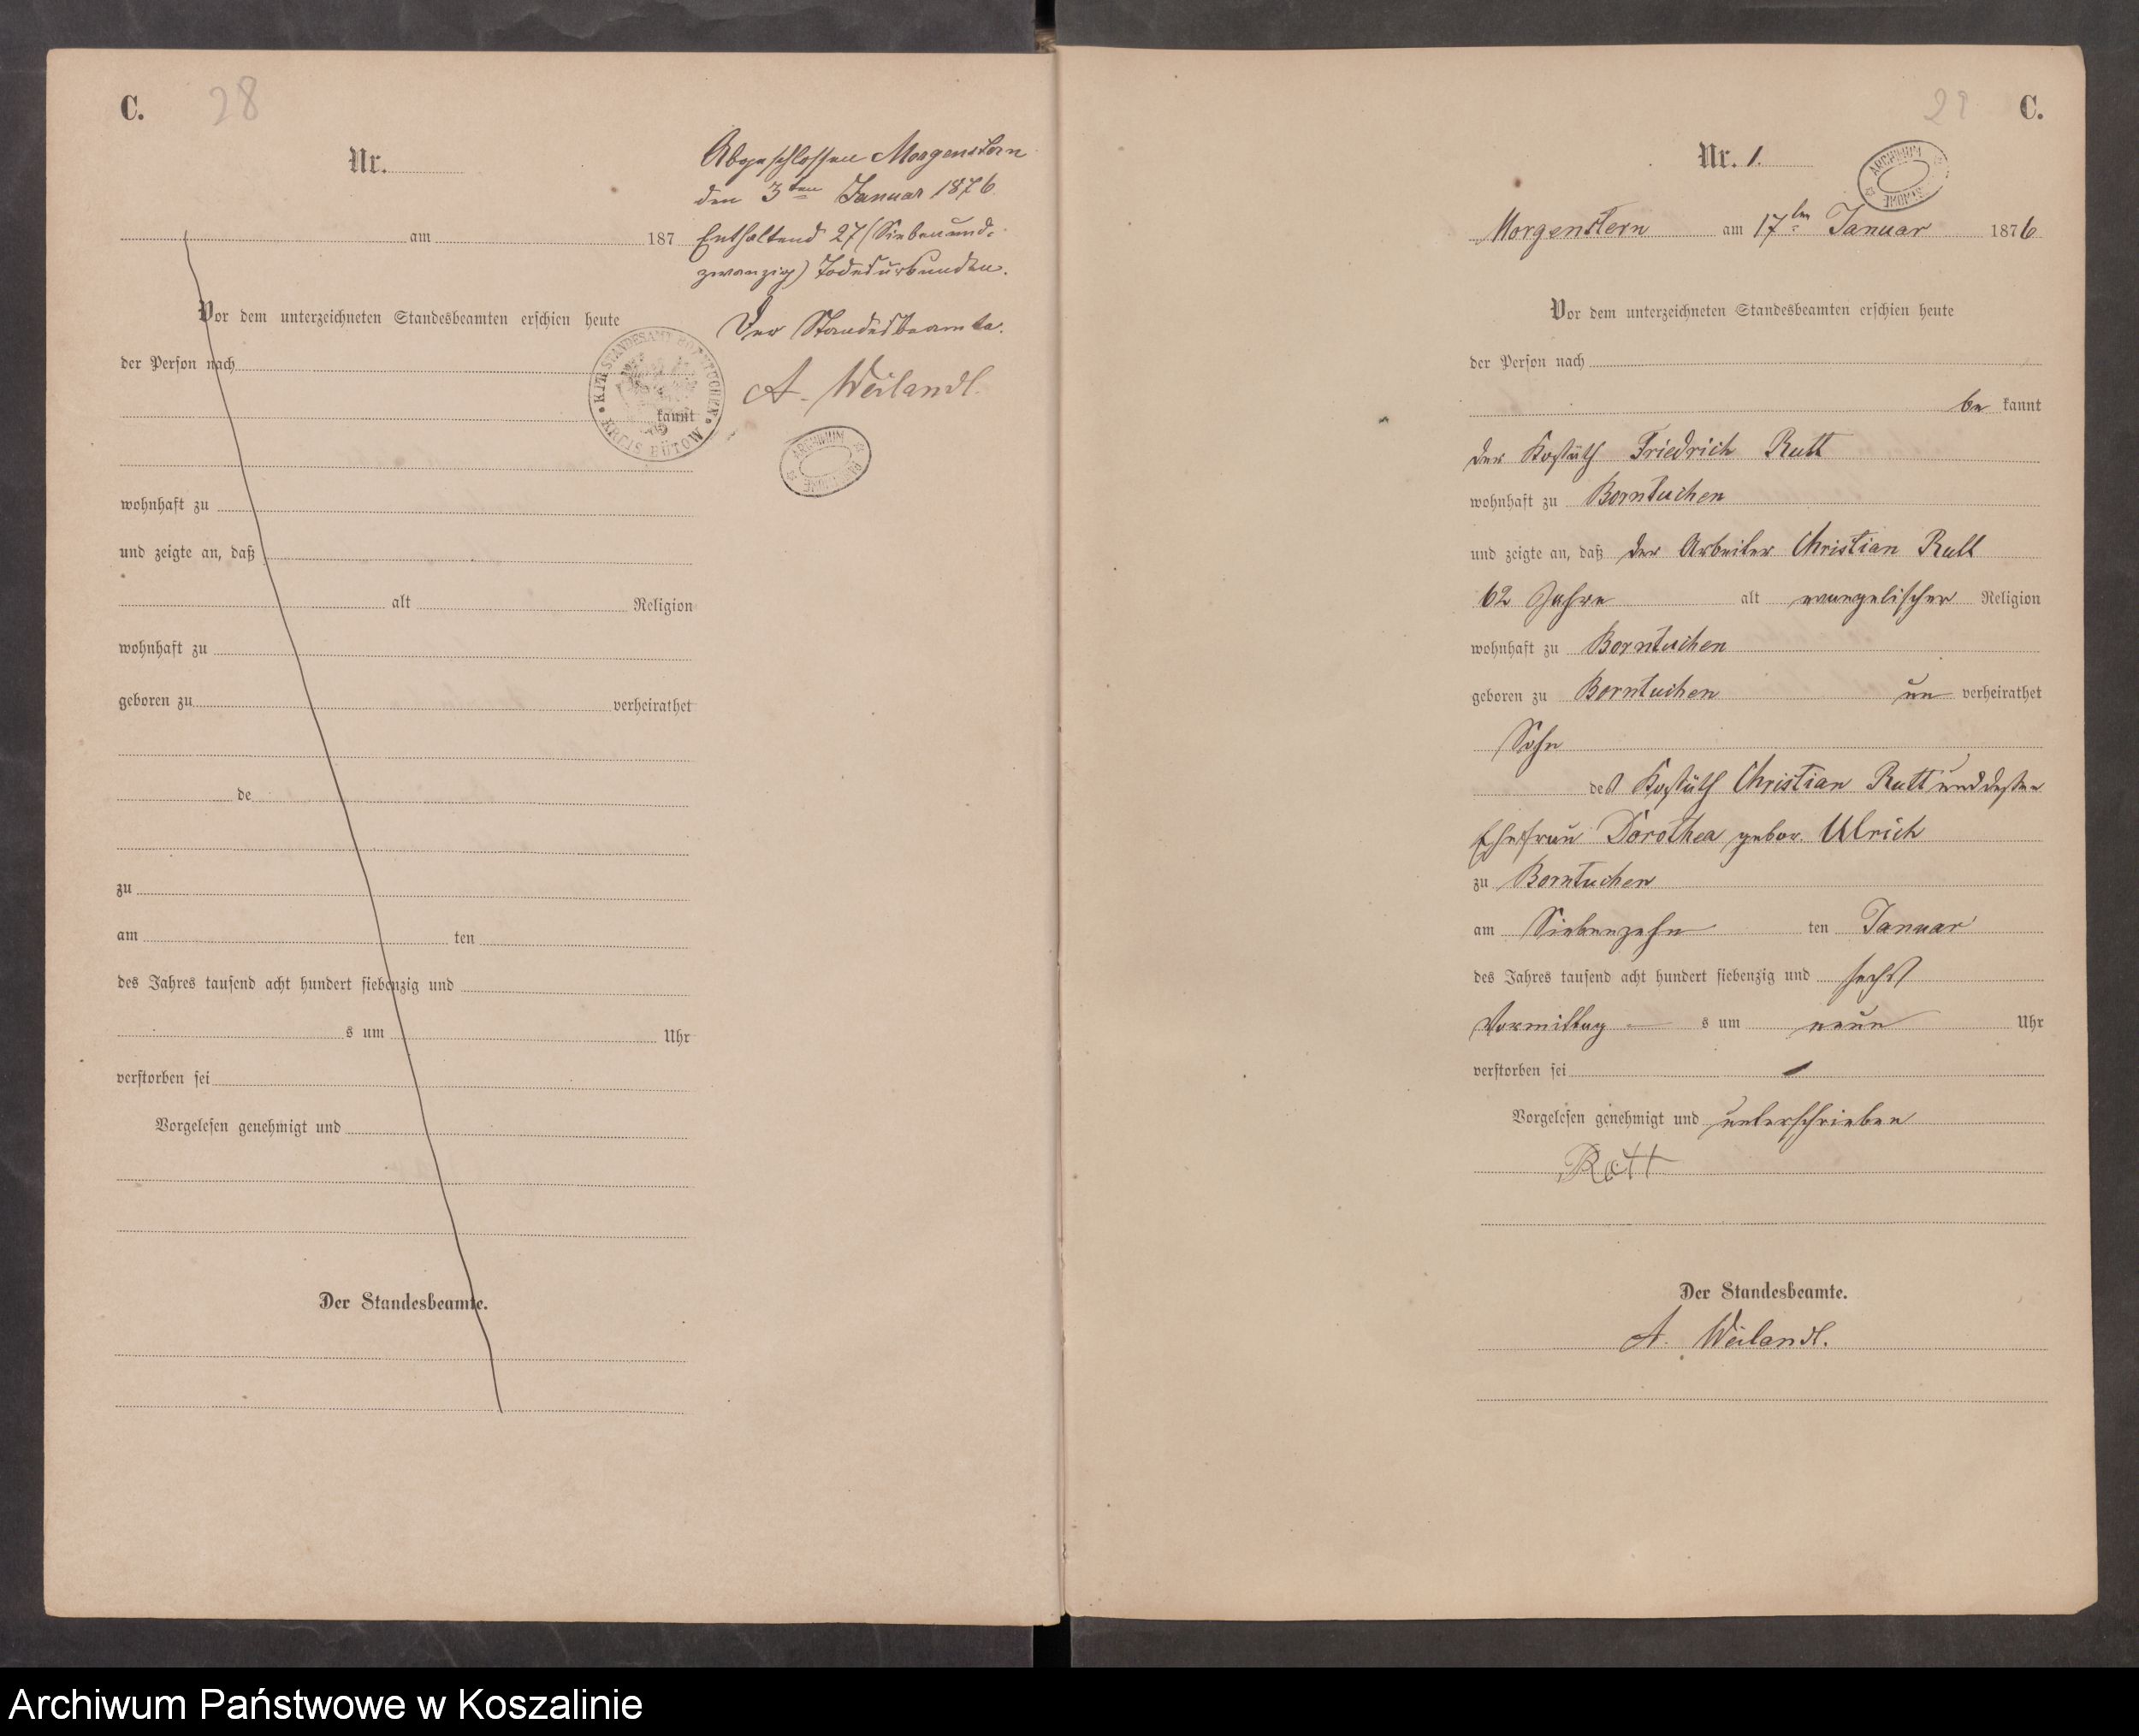 C. 28
Nr.
am 187
Vor dem unterzeichneten Standesbeamten erschien heute
der Person nach
kannt
wohnhaft zu
und zeigte an, daß
alt Religion
wohnhaft zu
geboren zu verheirathet
de
zu
am ten
des Jahres tausend acht hundert siebenzig und
s um Uhr
verstorben sei
Vorgelesen genehmigt und
Der Standesbeamte.
Abgeschlossen Morgenstern
den 3ten Januar 1876
Enthaltend 27 (Siebenund-
zwanzig) Todesurkunden.
Der Standesbeamte.
A. Weilandt.
STANDESAMT BORNTUCHEN
KREIS BÜTOW
ARCHIWUM
29 C.
Nr. 1.
ARCHIWUM
Morgenstern am 17ten Januar 1876
Vor dem unterzeichneten Standesbeamten erschien heute
der Person nach
be kannt
der Kossäth Friedrich Rutt
wohnhaft zu Borntuchen
und zeigte an, daß der Arbeiter Christian Rutt
62 Jahre alt evangelischer Religion
wohnhaft zu Borntuchen
geboren zu Borntuchen un verheirathet
Sohn
des Kossäth Christian Rutt und dessen
Ehefrau Dorothea gebor. Ulrich
zu Borntuchen
am Siebenzehn ten Januar
des Jahres tausend acht hundert siebenzig und sechs
Vormittag s um neun Uhr
verstorben sei
Vorgelesen genehmigt und unterschrieben
Rutt
Der Standesbeamte.
A. Weilandt.
Archiwum Państwowe w Koszalinie